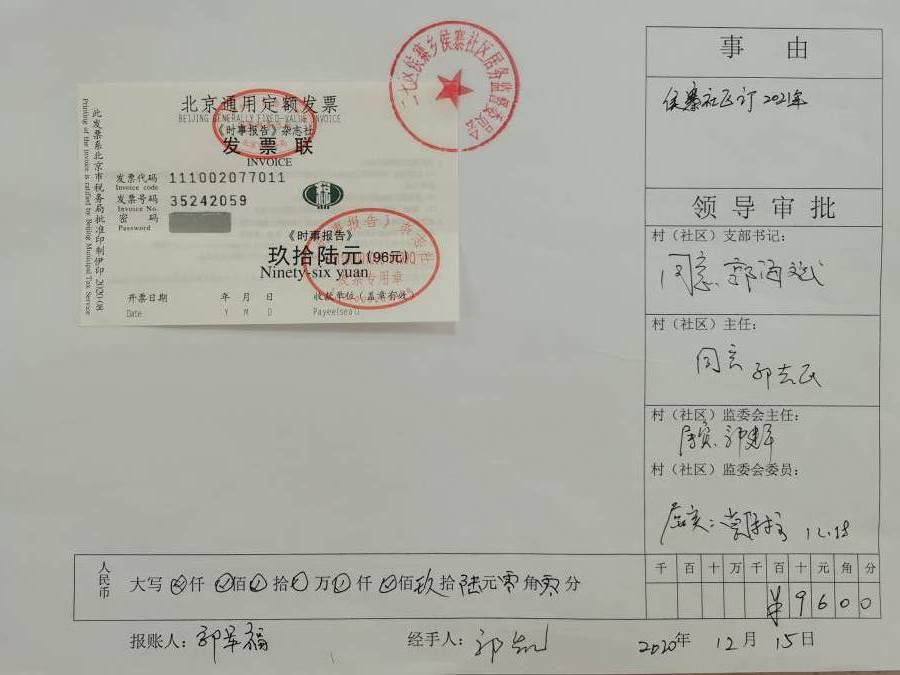 二七区侯寨乡侯寨社区居务监督委员会
此发票系北京市税务局批准印制伊印2020·08
Printing of the invoice is ratified by Beijing Municipal Tax Service
北京通用定额发票
BEIJING GENERALLY FIXED-VALUE INVOICE
《时事报告》杂志社
发票联
INVOICE
发票代码 111002077011
Invoice code
发票号码 35242059
Invoice No.
密 码
Password
《时事报告》
玖拾陆元(96元)
Ninety-six yuan
《时事报告》杂志社
发票专用章
开票日期 年 月 日 收款单位(盖章有效)
Date Y M D Payee(seal)
事由
侯寨社区订2021年
领导审批
村(社区)支部书记:
同意
村(社区)主任:
同意
村(社区)监委会主任:
属实
村(社区)监委会委员:
属实: 12.15
人民币 大写 仟 佰 拾 万 仟 佰玖拾陆元零角零分
千 百 十 万 千 百 十 元 角 分
¥ 9 6 0 0
报账人:
经手人:
2020年 12月 15日